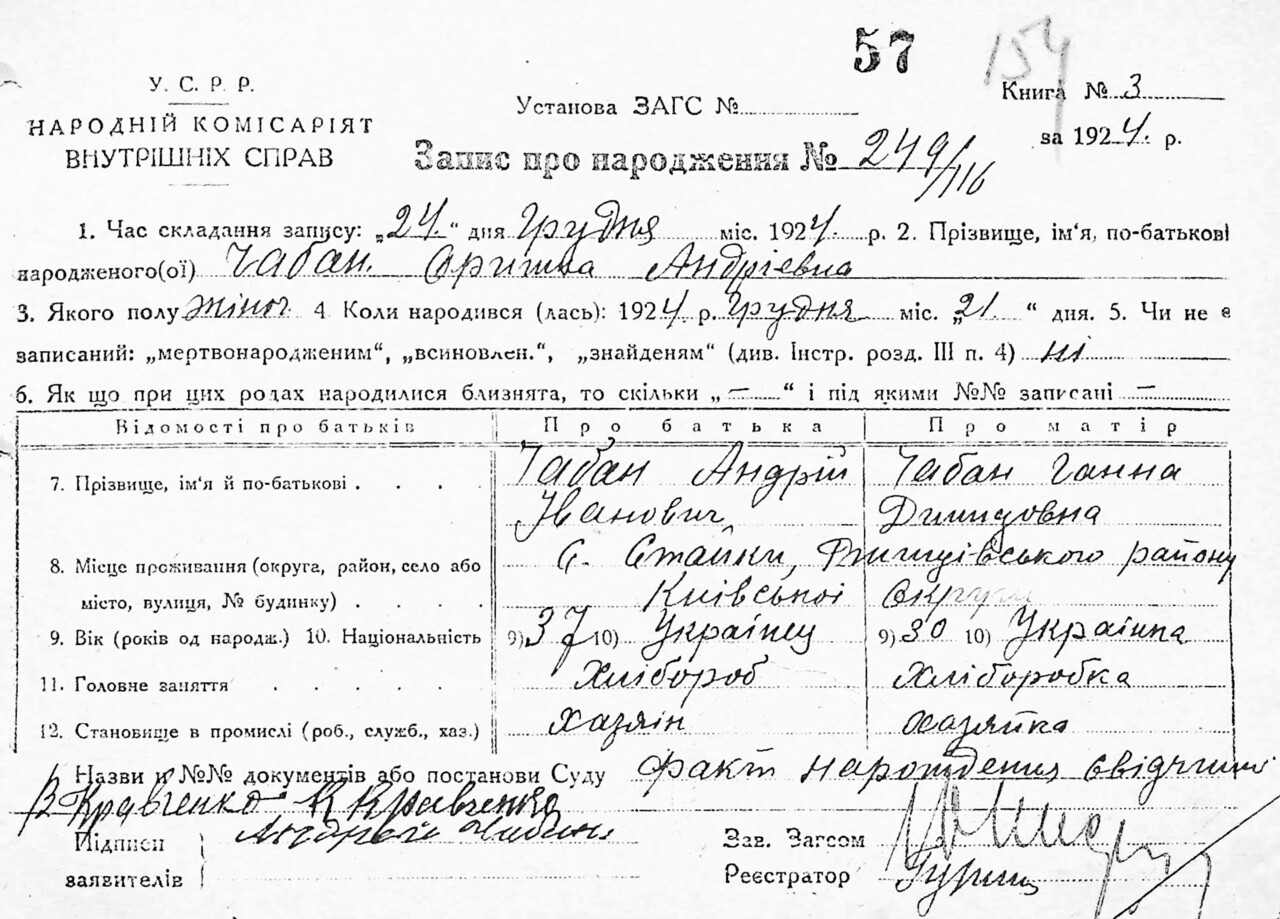 57
154
У. С. Р. Р.
НАРОДНІЙ КОМІСАРІЯТ
ВНУТРІШНІХ СПРАВ
Установа ЗАГС №
Книга № 3
за 1924. р.
Запис про народження № 249/116
1. Час складання запису: „24.“ дня Грудня міс. 1924. р. 2. Прізвище, ім'я, по-батькові
народженого(ої) Чабан. Оришка Андріевна
3. Якого полу жіноч. 4 Коли народився (лась): 1924. р. Грудня міс. „21. “ дня. 5. Чи не є
записаний: „мертвонародженим“, „всиновлен.“, „знайденям“ (див. Інстр. розд. III п. 4) ні
6. Як що при цих родах народилися близнята, то скільки „—“ і під якими №№ записані —
Відомості про батьків Про батька Про матір
7. Прізвище, ім'я й по-батькові . . . . Чабан Андрій Чабан Ганна
Іванович Демидовна
8. Місце проживання (округа, район, село або С. Стайки, району
місто, вулиця, № будинку) . . . . Київської Округи
9. Вік (років од народж.) 10. Національність 9) 37 10) Українец 9) 30 10) Українка
11. Головне заняття . . . . . Хлібороб Хліборобка
12. Становище в промислі (роб., служб., хаз.) Хазяін Хазяйка
Назви й №№ документів або постанови Суду Факт нарождения свідчили
Кравченко К Кравченко
Підписи Андрей Чабан
заявителів
Зав. Загсом
Реєстратор